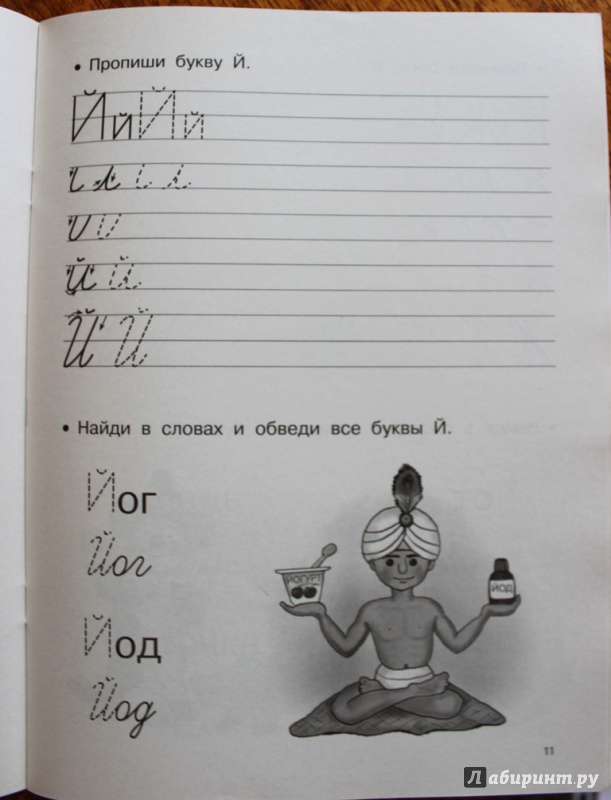 • Пропиши букву Й.
Й й Й й
й й
Й Й
• Найди в словах и обведи все буквы Й.
Йог
Йог
ЙОГУРТ
ЙОД
Йод
Йод
11
Лабиринт.ру